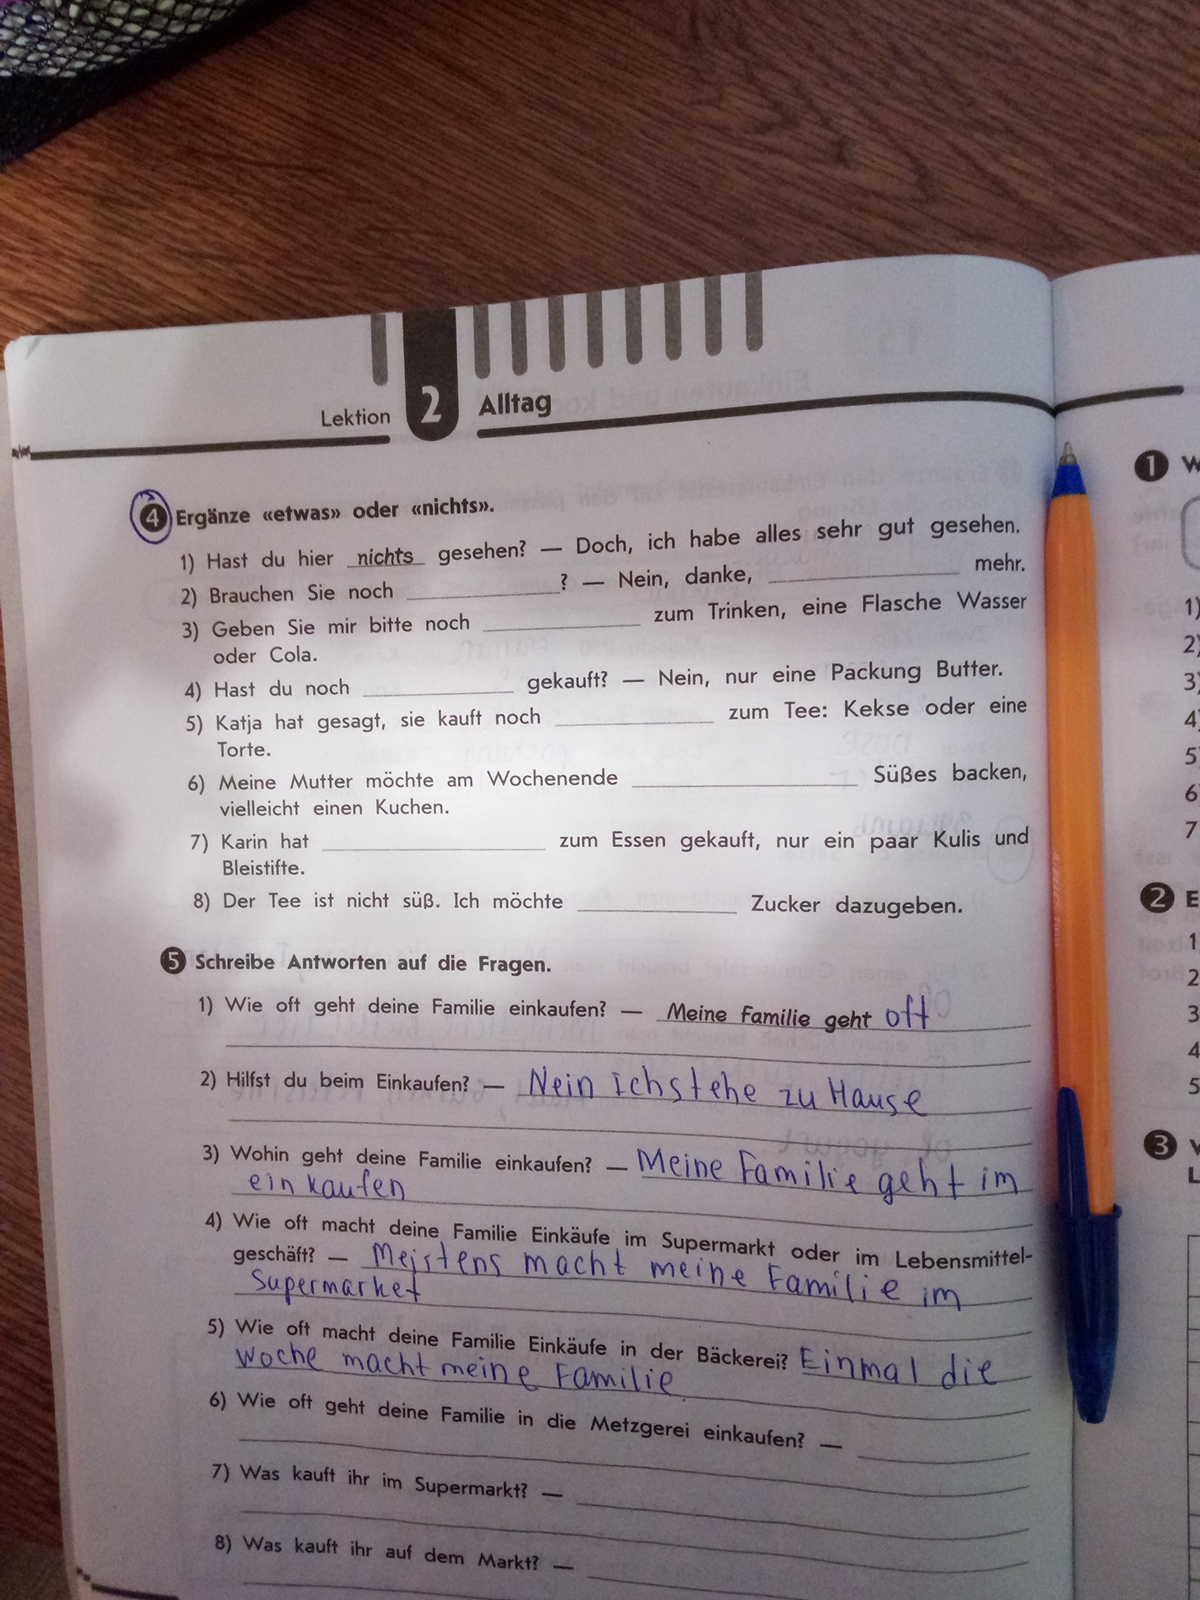 Lektion 2 Alltag
4 Ergänze «etwas» oder «nichts».
1) Hast du hier nichts gesehen? — Doch, ich habe alles sehr gut gesehen.
2) Brauchen Sie noch ____________? — Nein, danke, ____________ mehr.
3) Geben Sie mir bitte noch ____________ zum Trinken, eine Flasche Wasser
oder Cola.
4) Hast du noch ____________ gekauft? — Nein, nur eine Packung Butter.
5) Katja hat gesagt, sie kauft noch ____________ zum Tee: Kekse oder eine
Torte.
6) Meine Mutter möchte am Wochenende ____________ Süßes backen,
vielleicht einen Kuchen.
7) Karin hat ____________ zum Essen gekauft, nur ein paar Kulis und
Bleistifte.
8) Der Tee ist nicht süß. Ich möchte ____________ Zucker dazugeben.
5 Schreibe Antworten auf die Fragen.
1) Wie oft geht deine Familie einkaufen? — Meine Familie geht oft
2) Hilfst du beim Einkaufen? — Nein ich stehe zu Hause
3) Wohin geht deine Familie einkaufen? — Meine Familie geht im
einkaufen
4) Wie oft macht deine Familie Einkäufe im Supermarkt oder im Lebensmittel-
geschäft? — Meistens macht meine Familie im
Supermarket
5) Wie oft macht deine Familie Einkäufe in der Bäckerei? Einmal die
woche macht meine Familie
6) Wie oft geht deine Familie in die Metzgerei einkaufen? —
7) Was kauft ihr im Supermarkt? —
8) Was kauft ihr auf dem Markt? —
1 W
1)
2)
3)
4)
5
6
7
2 E
1
2
3
4
5
3
L